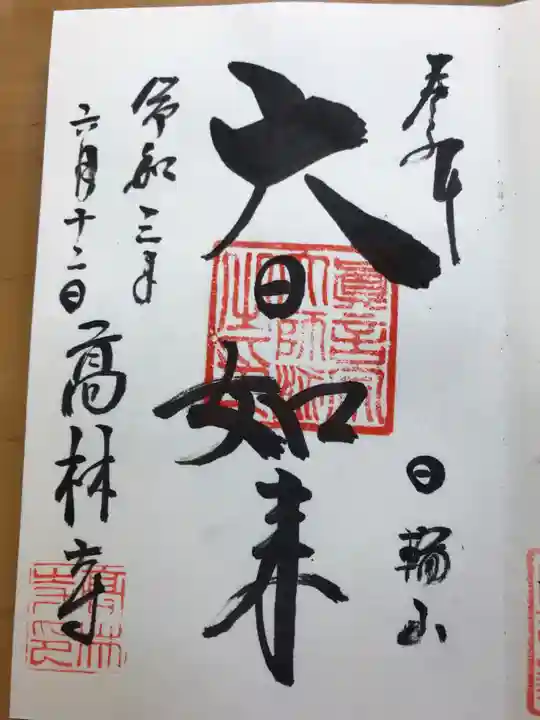 奉拝
日輪山
大日如来
令和三年
六月十二日
高林寺